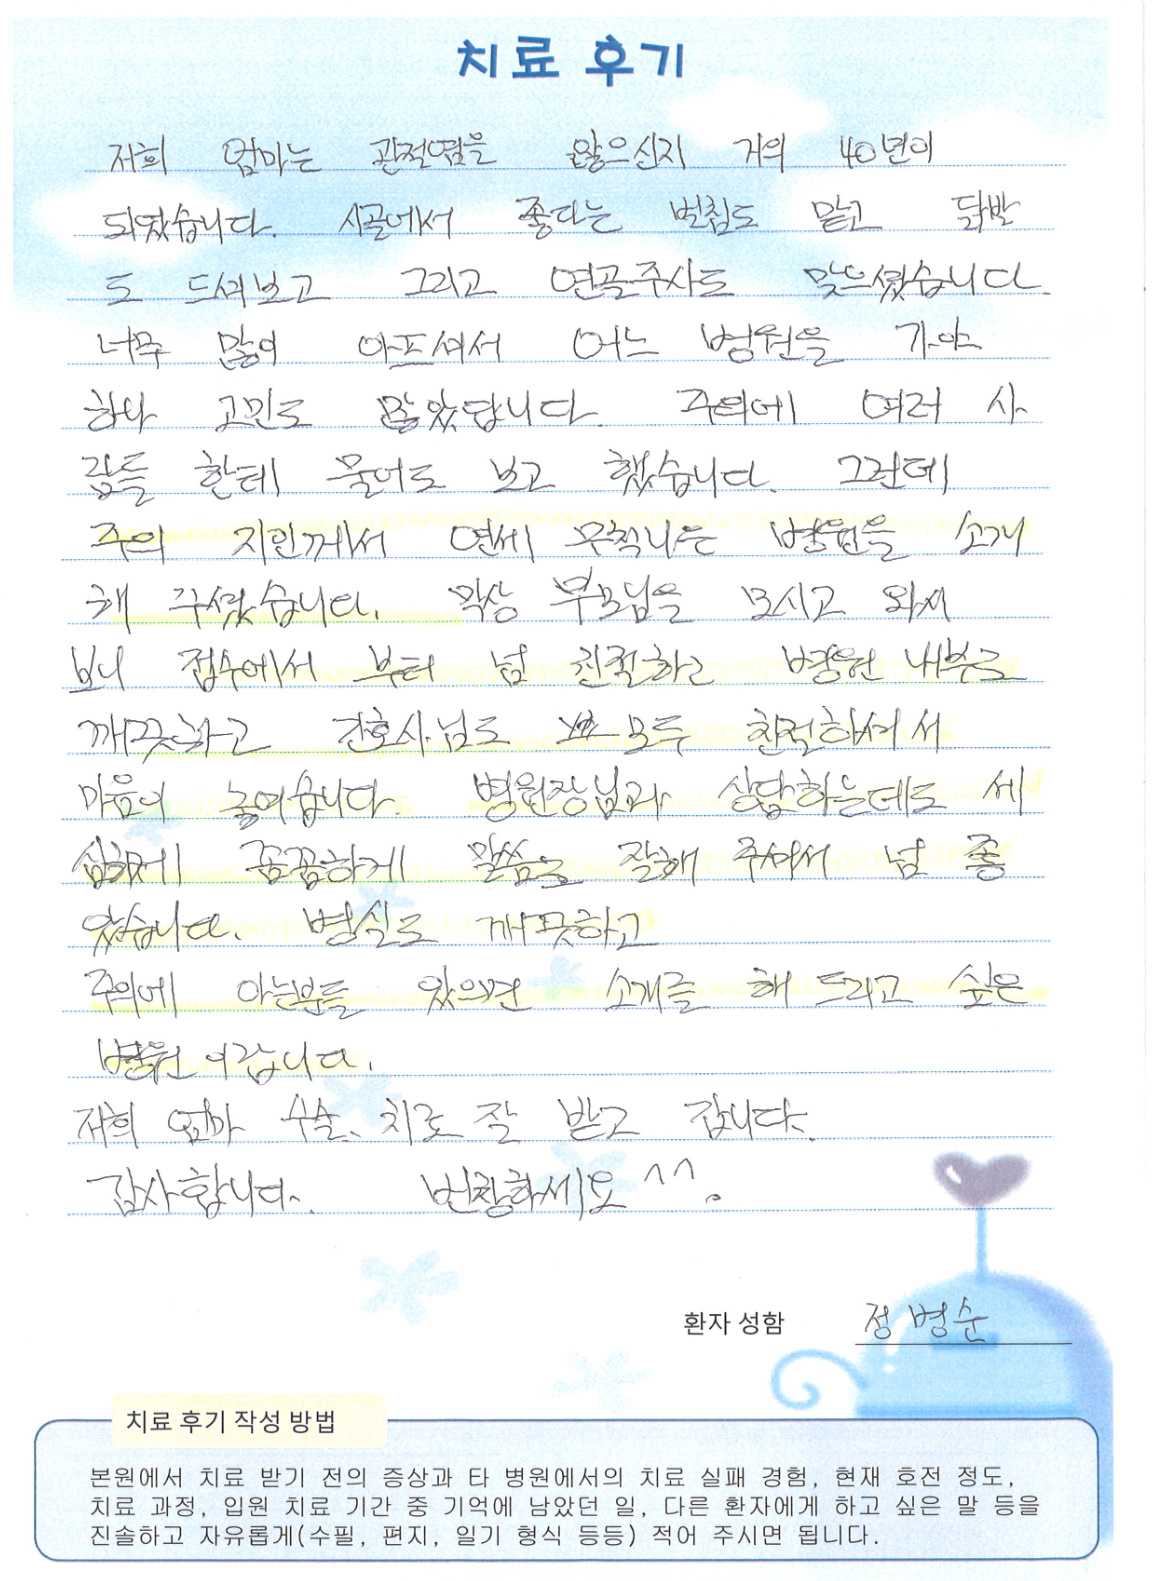 치료 후기
저희 엄마는 관절염을 앓으신지 거의 40년이
되었습니다. 시골에서 좋다는 벌침도 맡고 닭발
도 드셔보고 그리고 연골주사도 맞으셨습니다
너무 많이 아프셔서 어느 병원을 가야
하나 고민도 많았답니다. 주의에 여러 사
람들 한테 물어도 보고 했습니다. 그런데
주의 지인께서 연세 무척나은 병원을 소개
해 주셨습니다. 막상 부모님을 모시고 와서
보니 접수에서 부터 넘 친절하고 병원 내부도
깨끗하고 간호사님도 모두 친절하셔서
마음이 놓여습니다. 병원장님과 상담하는데도 세
심하게 꼼꼼하게 말씀을 잘해 주셔서 넘 좋
았습니다. 병실도 깨끗하고
주의에 아는분들 있으면 소개를 해 드리고 싶은
병원 이랍니다.
저희 엄마 수술, 치료 잘 받고 갑니다.
감사합니다. 번창하세요 ^^.
환자 성함 정병순
치료 후기 작성 방법
본원에서 치료 받기 전의 증상과 타 병원에서의 치료 실패 경험, 현재 호전 정도,
치료 과정, 입원 치료 기간 중 기억에 남았던 일, 다른 환자에게 하고 싶은 말 등을
진솔하고 자유롭게(수필, 편지, 일기 형식 등등) 적어 주시면 됩니다.